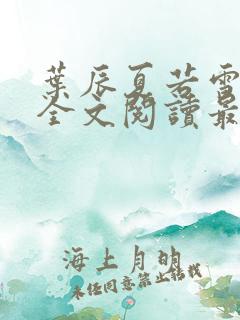 葉辰夏若雪
全文閱讀最
海上月明
未經同意禁止轉載